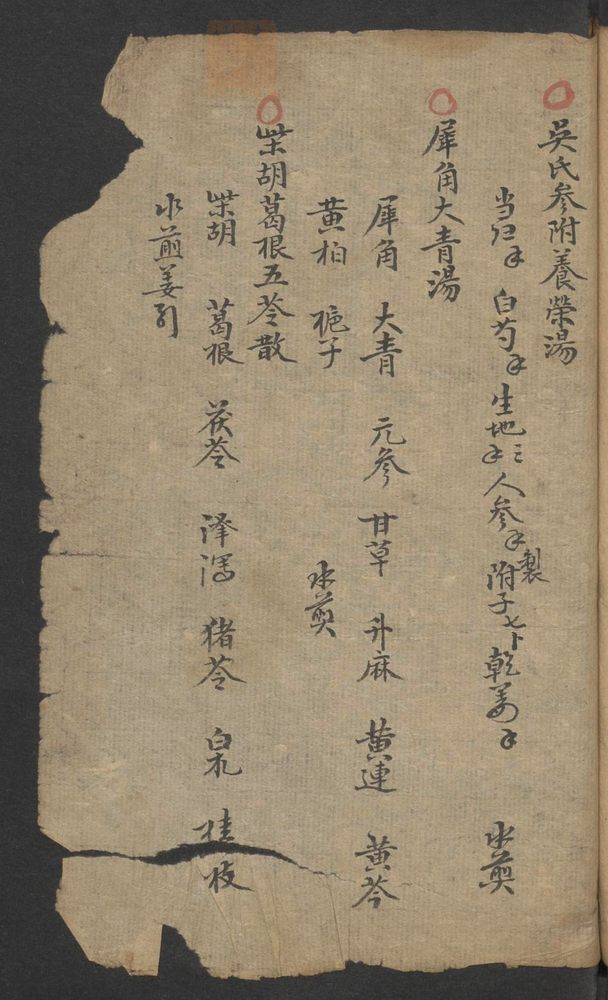 吳氏參附養榮湯
当归 白芍 生地三 人參 製附子七卜 乾姜 水煎
犀角大青湯
犀角 大青 元參 甘草 升麻 黃連 黃芩
黃柏 梔子 水煎
柴胡葛根五苓散
柴胡 葛根 茯苓 澤瀉 猪苓 白朮 桂枝
水煎姜引